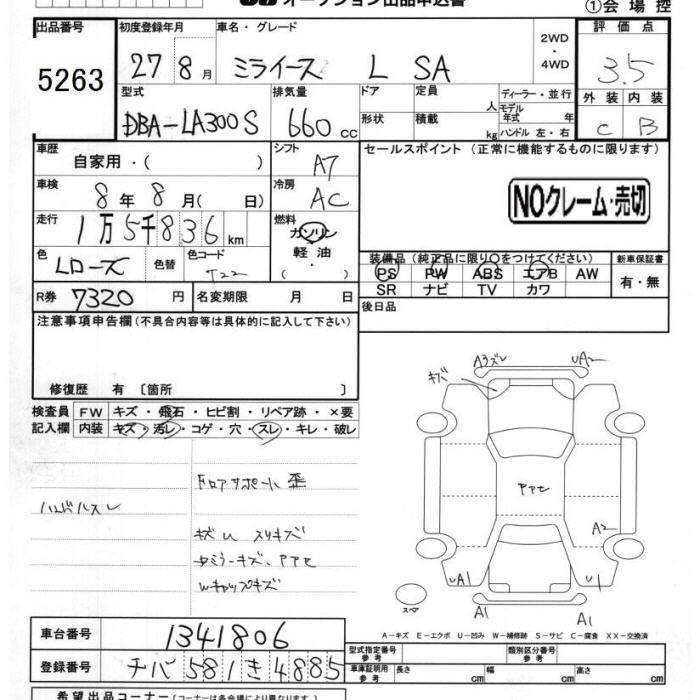 オークション出品申込書
①会場控
出品番号 初度登録年月 車名・グレード 2WD・4WD 評価点
5263 27 8月 ミライース L SA 3.5
型式 排気量 ドア 定員 人 ディーラー・並行 外装 内装
DBA-LA300S 660cc 形状 積載 kg モデル年式 年 ハンドル 左・右 C B
車歴 自家用・( ) シフト A7 セールスポイント (正常に機能するものに限ります)
車検 8年8月( 日) 冷房 AC NOクレーム・売切
走行 1万5千836km 燃料 ガソリン・軽油・( )
色 Lローズ 色替 色コード T22
装備品(純正品に限り○をつけてください) 新車保証書
PS PW ABS エアB AW 有・無
SR ナビ TV カワ
R券 7320円 名変期限 月 日 後日品
注意事項申告欄(不具合内容等は具体的に記入して下さい)
修復歴 有 〔箇所 〕
検査員 FW キズ・飛石・ヒビ割・リペア跡・×要
記入欄 内装 キズ・汚レ・コゲ・穴・スレ・キレ・破レ
A3ズレ UA2
キズ
Fロアサポート歪
ハンドルスレ
PTせ
A2
キズU スリキズ
Wキャップキズ
UA1 U1
スペア
A1 A1
A-キズ E-エクボ U-凹み W-補修跡 S-サビ C-腐食 XX-交換済
車台番号 1341806
型式指定番号 参考 類別区分番号
登録番号 チバ 581 き 4885
車庫証明用参考 長さ cm 幅 cm 高さ cm
希望出品コーナー(コーナーは各会場により異なります)